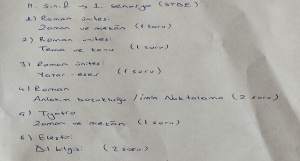 11. sınıf → 1. senaryo (STDE)
1) Roman ünitesi
Zaman ve mekân (1 soru)
2) Roman ünitesi
Tema ve konu (1 soru)
3) Roman ünitesi
Yazar-eser (1 soru)
4) Roman
Anlatım bozukluğu / imla Noktalama (2 soru)
5) Tiyatro
Zaman ve mekân (1 soru)
6) Eleştiri
Dil bilgisi (2 soru)